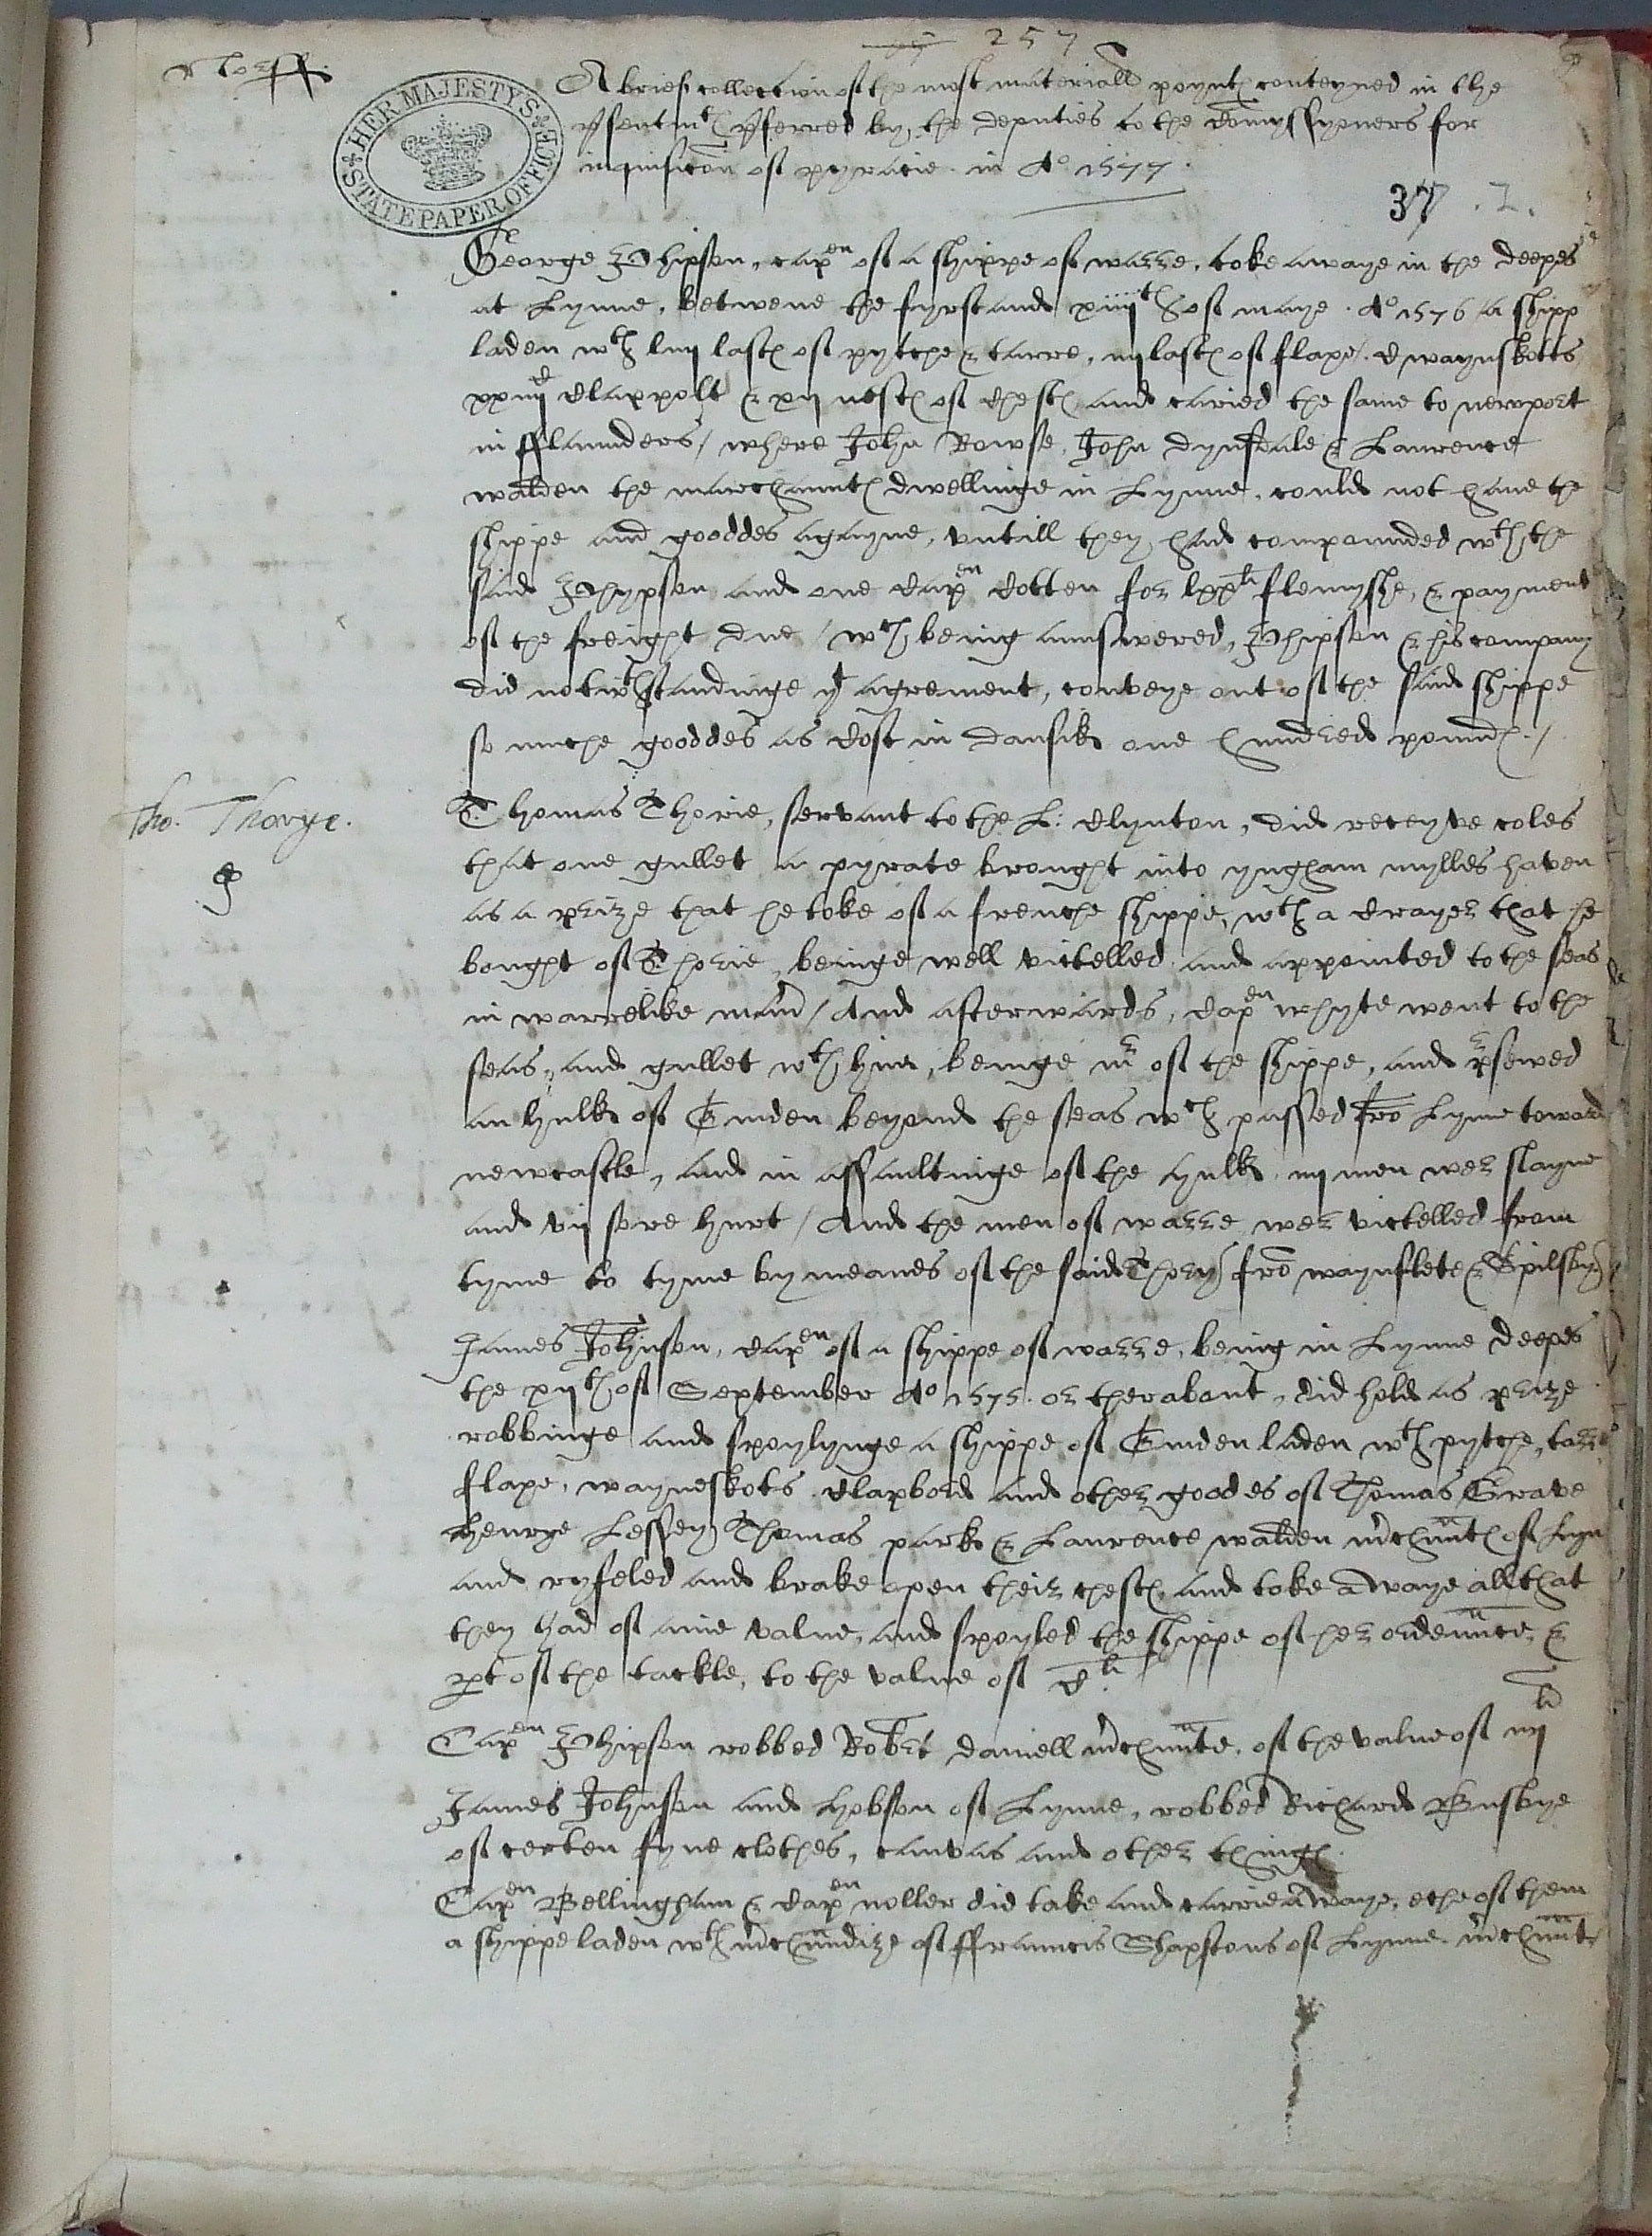 257
A brief collection of the most materiall poynts conteyned in the
psentmts pferred by the deputies to the Comyssyoners for
inquisicon of pyracie in Ao 1577.
HER MAJESTY'S STATE PAPER OFFICE
37 . I.
George Phipson, capen of a shippe of warre, toke awaye in the deepes
at Lynne, betwene the fyrst and xiiiith of maye Ao 1576 / a shipp
laden wth liij lasts of pytche & tarre, iij lasts of flaxe, C waynskotts
xxiiijC Clappolt & xij nests of Chests and caried the same to newport
in fflaunders / where John Rowse, John dynsdale & Laurence
walden the marchaunts dwellinge in Lynne, could not have the
shippe and gooddes agayne, untill they had compounded wth the
said Phypson and one Capen Cotten for lxxli flemyshe, & payment
of the freight due / wch being aunswered, Phipson & his company
did notwthstandinge ye agrement, conveye out of the said shippe
so muche gooddes as Cost in dansik one hundred pounds./
Tho. Thorye.
Thomas Thorie, servant to the L: Clynton, did receyve coles
that one gullet a pyrate brought into yngham mylles haven
as a prize that he toke of a frenche shippe, wth a Crayer that he
bought of Thorie, beinge well victelled and appointed to the seas
in warrelike maner / And afterwards, Capen whyte went to the
seas, and gullet wth hym, beinge mr of the shippe, and pursewed
an hulk of Emden beyond the seas wch passed fro Lynne toward
newcastle, and in assaultinge of the hulk iij men wer slayne
and vij sore hurt / And the men of warre wer victelled from
tyme to tyme by meanes of the said Thory fro waynflete & Spilsby
James Johnson, Capen of a shippe of warre, being in Lynne deepes
the xijth of September Ao 1575. or therabout, did hold as prize
robbinge and spoylynge a shippe of Emden laden wth pytche, tarr
flaxe, wayneskots Clapbord and other goodes of Thomas Grave
Henrye Lessey Thomas park & Laurence walden mchunts of Lyn
and ryfeled and brake open their chests and toke awaye all that
they had of anie value, and spoyled the shippe of her ordeunce, &
pt of the tackle, to the value of Cli
Capen Phipson robbed Robert daniell mchunte, of the value of iijli
James Johnson and Hobson of Lynne, robbed Richard Busbye
of certen fyne clothes, canvas and other things
Capen Bellingham & Capen noller did take and carrie awaye, eche of them
a shippe laden wth mchundize of ffrauncis Shaxtons of Lynne mchunt